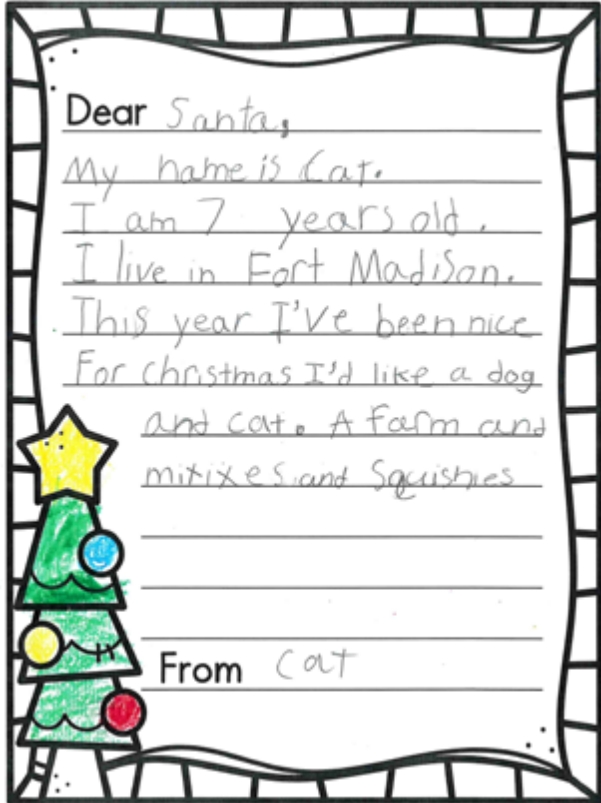 Dear Santa,
My name is Cat.
I am 7 years old.
I live in Fort Madison.
This year I've been nice
For christmas I'd like a dog
and cat. A farm and
mixixes and Squishies
From Cat